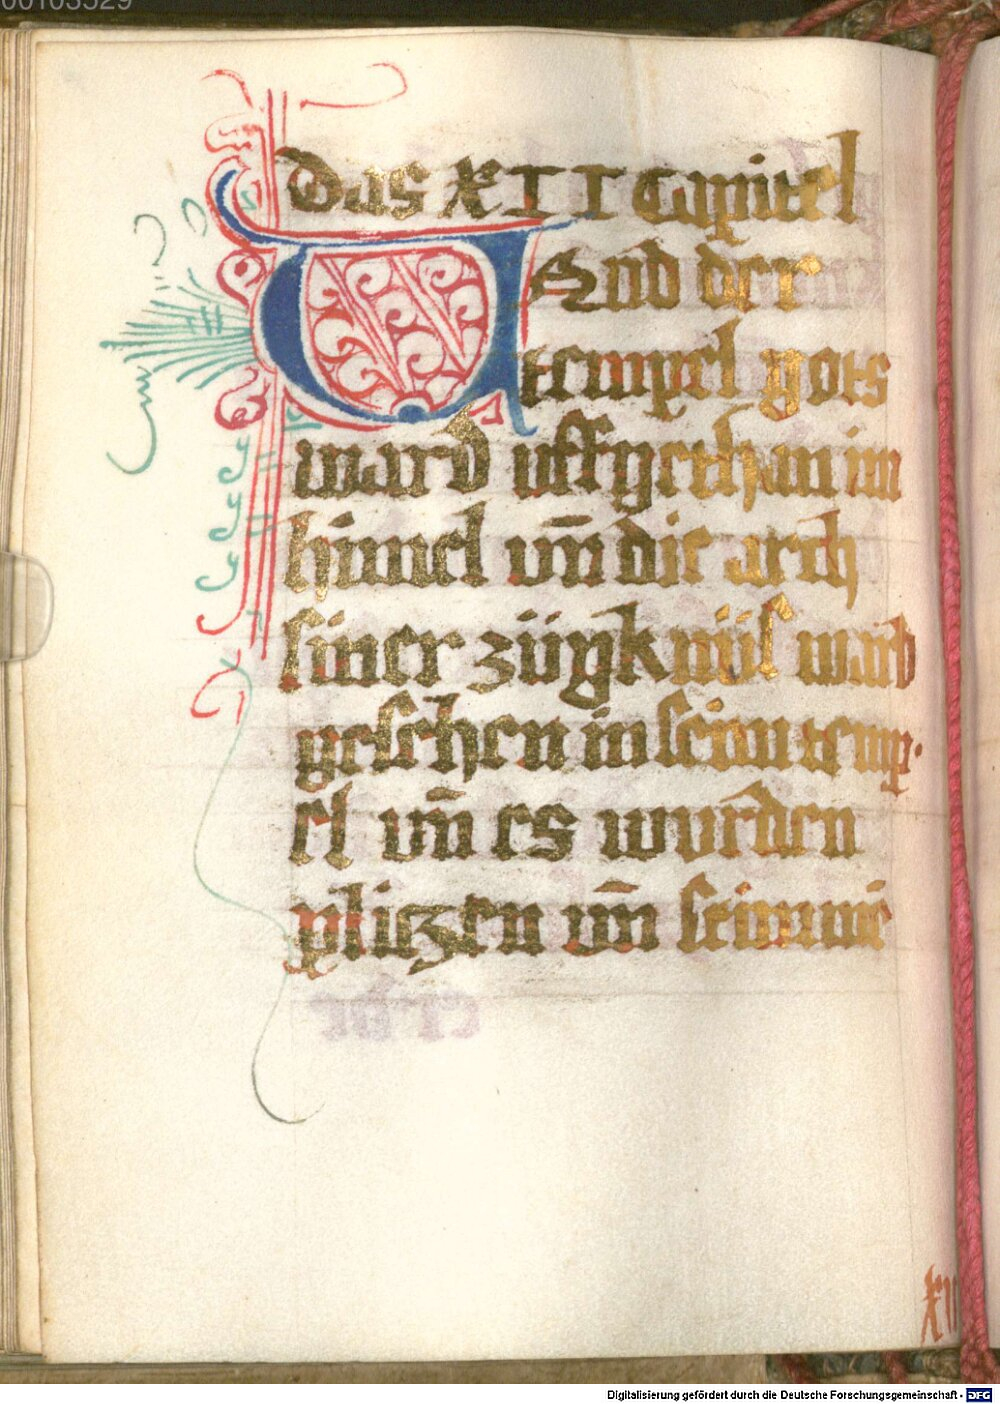 00103529
das XII Capitel
Vnd der
tempel gots
ward uffgethan im
himel vn̄ die arch
siner zügknüs ward
gesehen in seinn temp·
el vn̄ es wurden
plitzen vn̄ stimme
XII
Digitalisierung gefördert durch die Deutsche Forschungsgemeinschaft - DFG